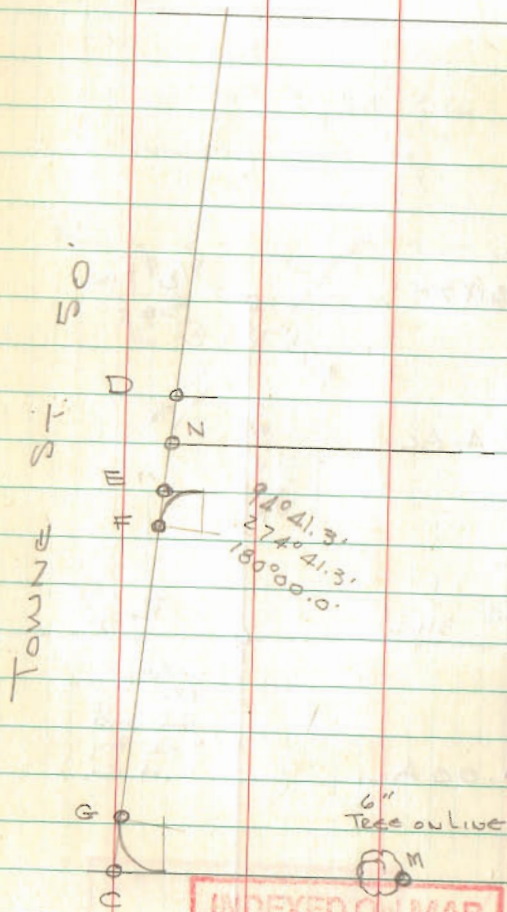 ST. 50'
D
N
E
F
94°41.3'
274°41.3'
180°00.0'
G
6"
TREE ON LINE
M
C
INDEXED ON MAP